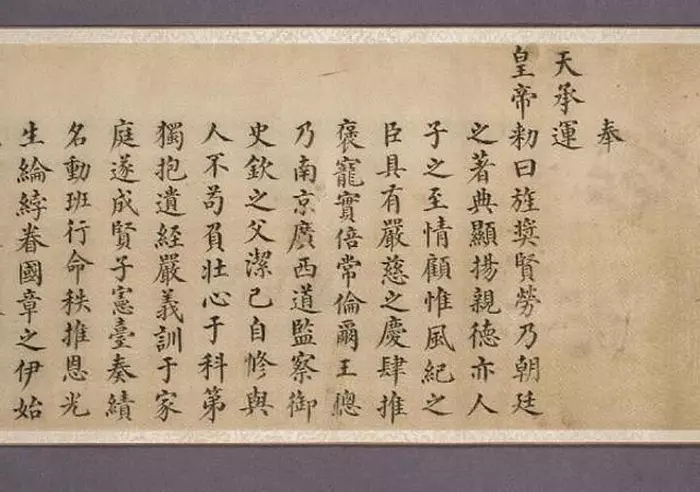 奉
天承運
皇帝勑曰旌奬賢勞乃朝廷
之著典顯揚親德亦人
子之至情顧惟風紀之
臣具有嚴慈之慶肆推
褒寵實倍常倫爾王總
乃南京廣西道監察御
史欽之父潔己自修與
人不苟負壯心于科第
獨抱遺經嚴義訓于家
庭遂成賢子憲臺奏績
名動班行命秩推恩光
生綸綍眷國章之伊始